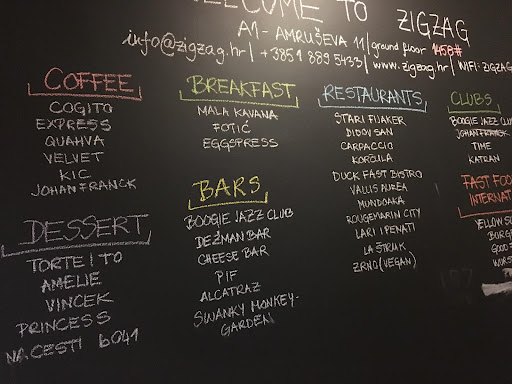 WELCOME TO ZIGZAG
A1 - AMRUŠEVA 11 | ground floor
info@zigzag.hr | +3851 889 5433 | www.zigzag.hr | WIFI: ZIGZAG
COFFEE
COGITO
EXPRESS
QUAHVA
VELVET
KIC
JOHAN FRANCK
DESSERT
TORTE I TO
AMELIE
VINCEK
PRINCESS
NA CESTI b041
BREAKFAST
MALA KAVANA
FOTIĆ
EGGSPRESS
BARS
BOOGIE JAZZ CLUB
DEŽMAN BAR
CHEESE BAR
PIF
ALCATRAZ
SWANKY MONKEY-
GARDEN
RESTAURANTS
STARI FIJAKER
DIDOV SAN
CARPACCIO
KORČULA
DUCK FAST BISTRO
VALLIS AUREA
MUNDOAKA
ROUGEMARIN CITY
LARI I PENATI
LA ŠTRUK
ZRNO (VEGAN)
CLUBS
BOOGIE JAZZ CLU
JOHAN FRANCK
TIME
KATRAN
FAST FOO
INTERNAT
YELLOW SU
BURG
GOOD
WURS